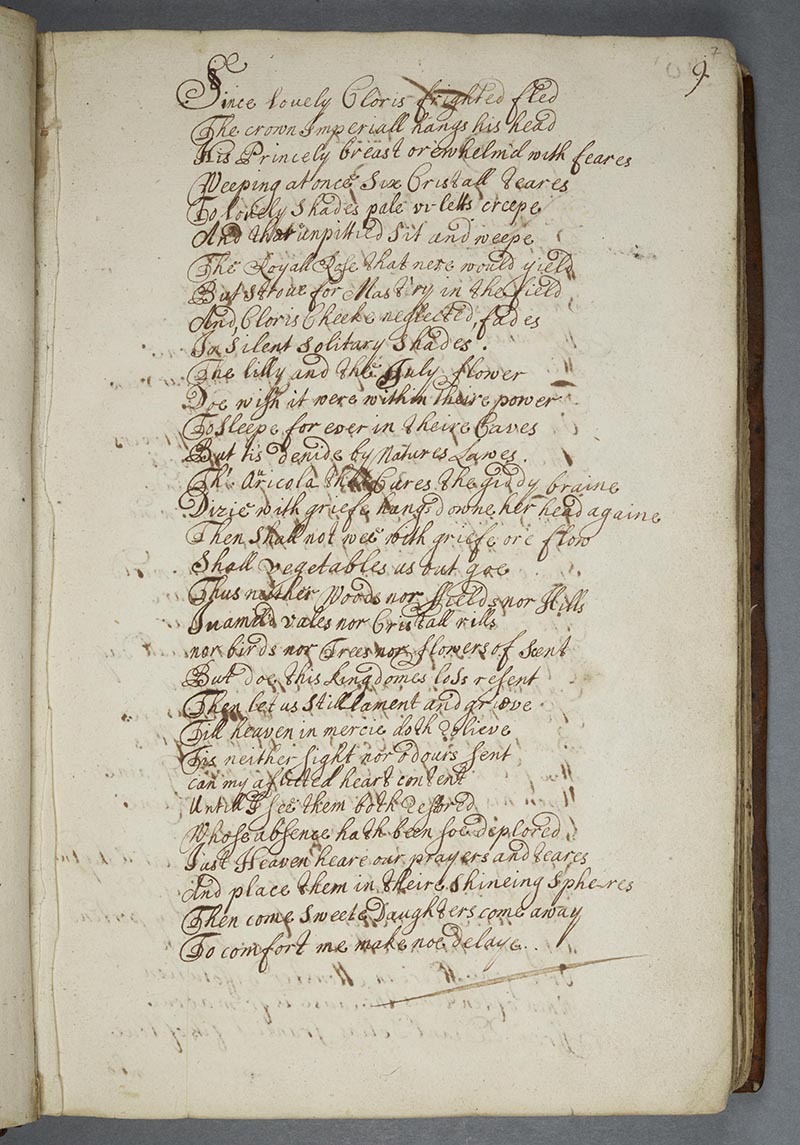 9
7
Since lovely Cloris frighted fled
The crown Imperiall hangs his head
His Princely breast orewhelm'd with feares
Weeping at once Six Cristall teares
To lovely shades pale vi-letts creepe
And that unpittied sit and weepe
The Royall Rose that nere would yield
But stroue for Mast'ry in the field
And, Cloris Cheeke neglected, fades
In silent solitary shades.
The lilly and the July flower
Doe wish it were within theire power
To sleepe for ever in theire Caves
But tis denide by Natures Lawes.
Th' Aricola that Cures the giddy braine
Dizie with griefe hangs downe her head againe
Then shall not wee with griefe ore flow
Shall vegetables us out goe
Thus neither Woods nor ffields nor Hills
Inamil'd vales nor Cristall rills
nor birds nor Trees nor flowers of scent
But doe this kingdomes loss resent
Then let us still lament and grieve
Till heaven in mercie doth Relieve
Tis neither sight nor odours sent
can my aflicted heart content
Untill I see them both Restored
Whose absence hath been soe deplored
Just Heaven heare our prayers and teares
And place them in theire shineing Sphe-res
Then come sweete Daughters come away
To comfort me make noe delaye..